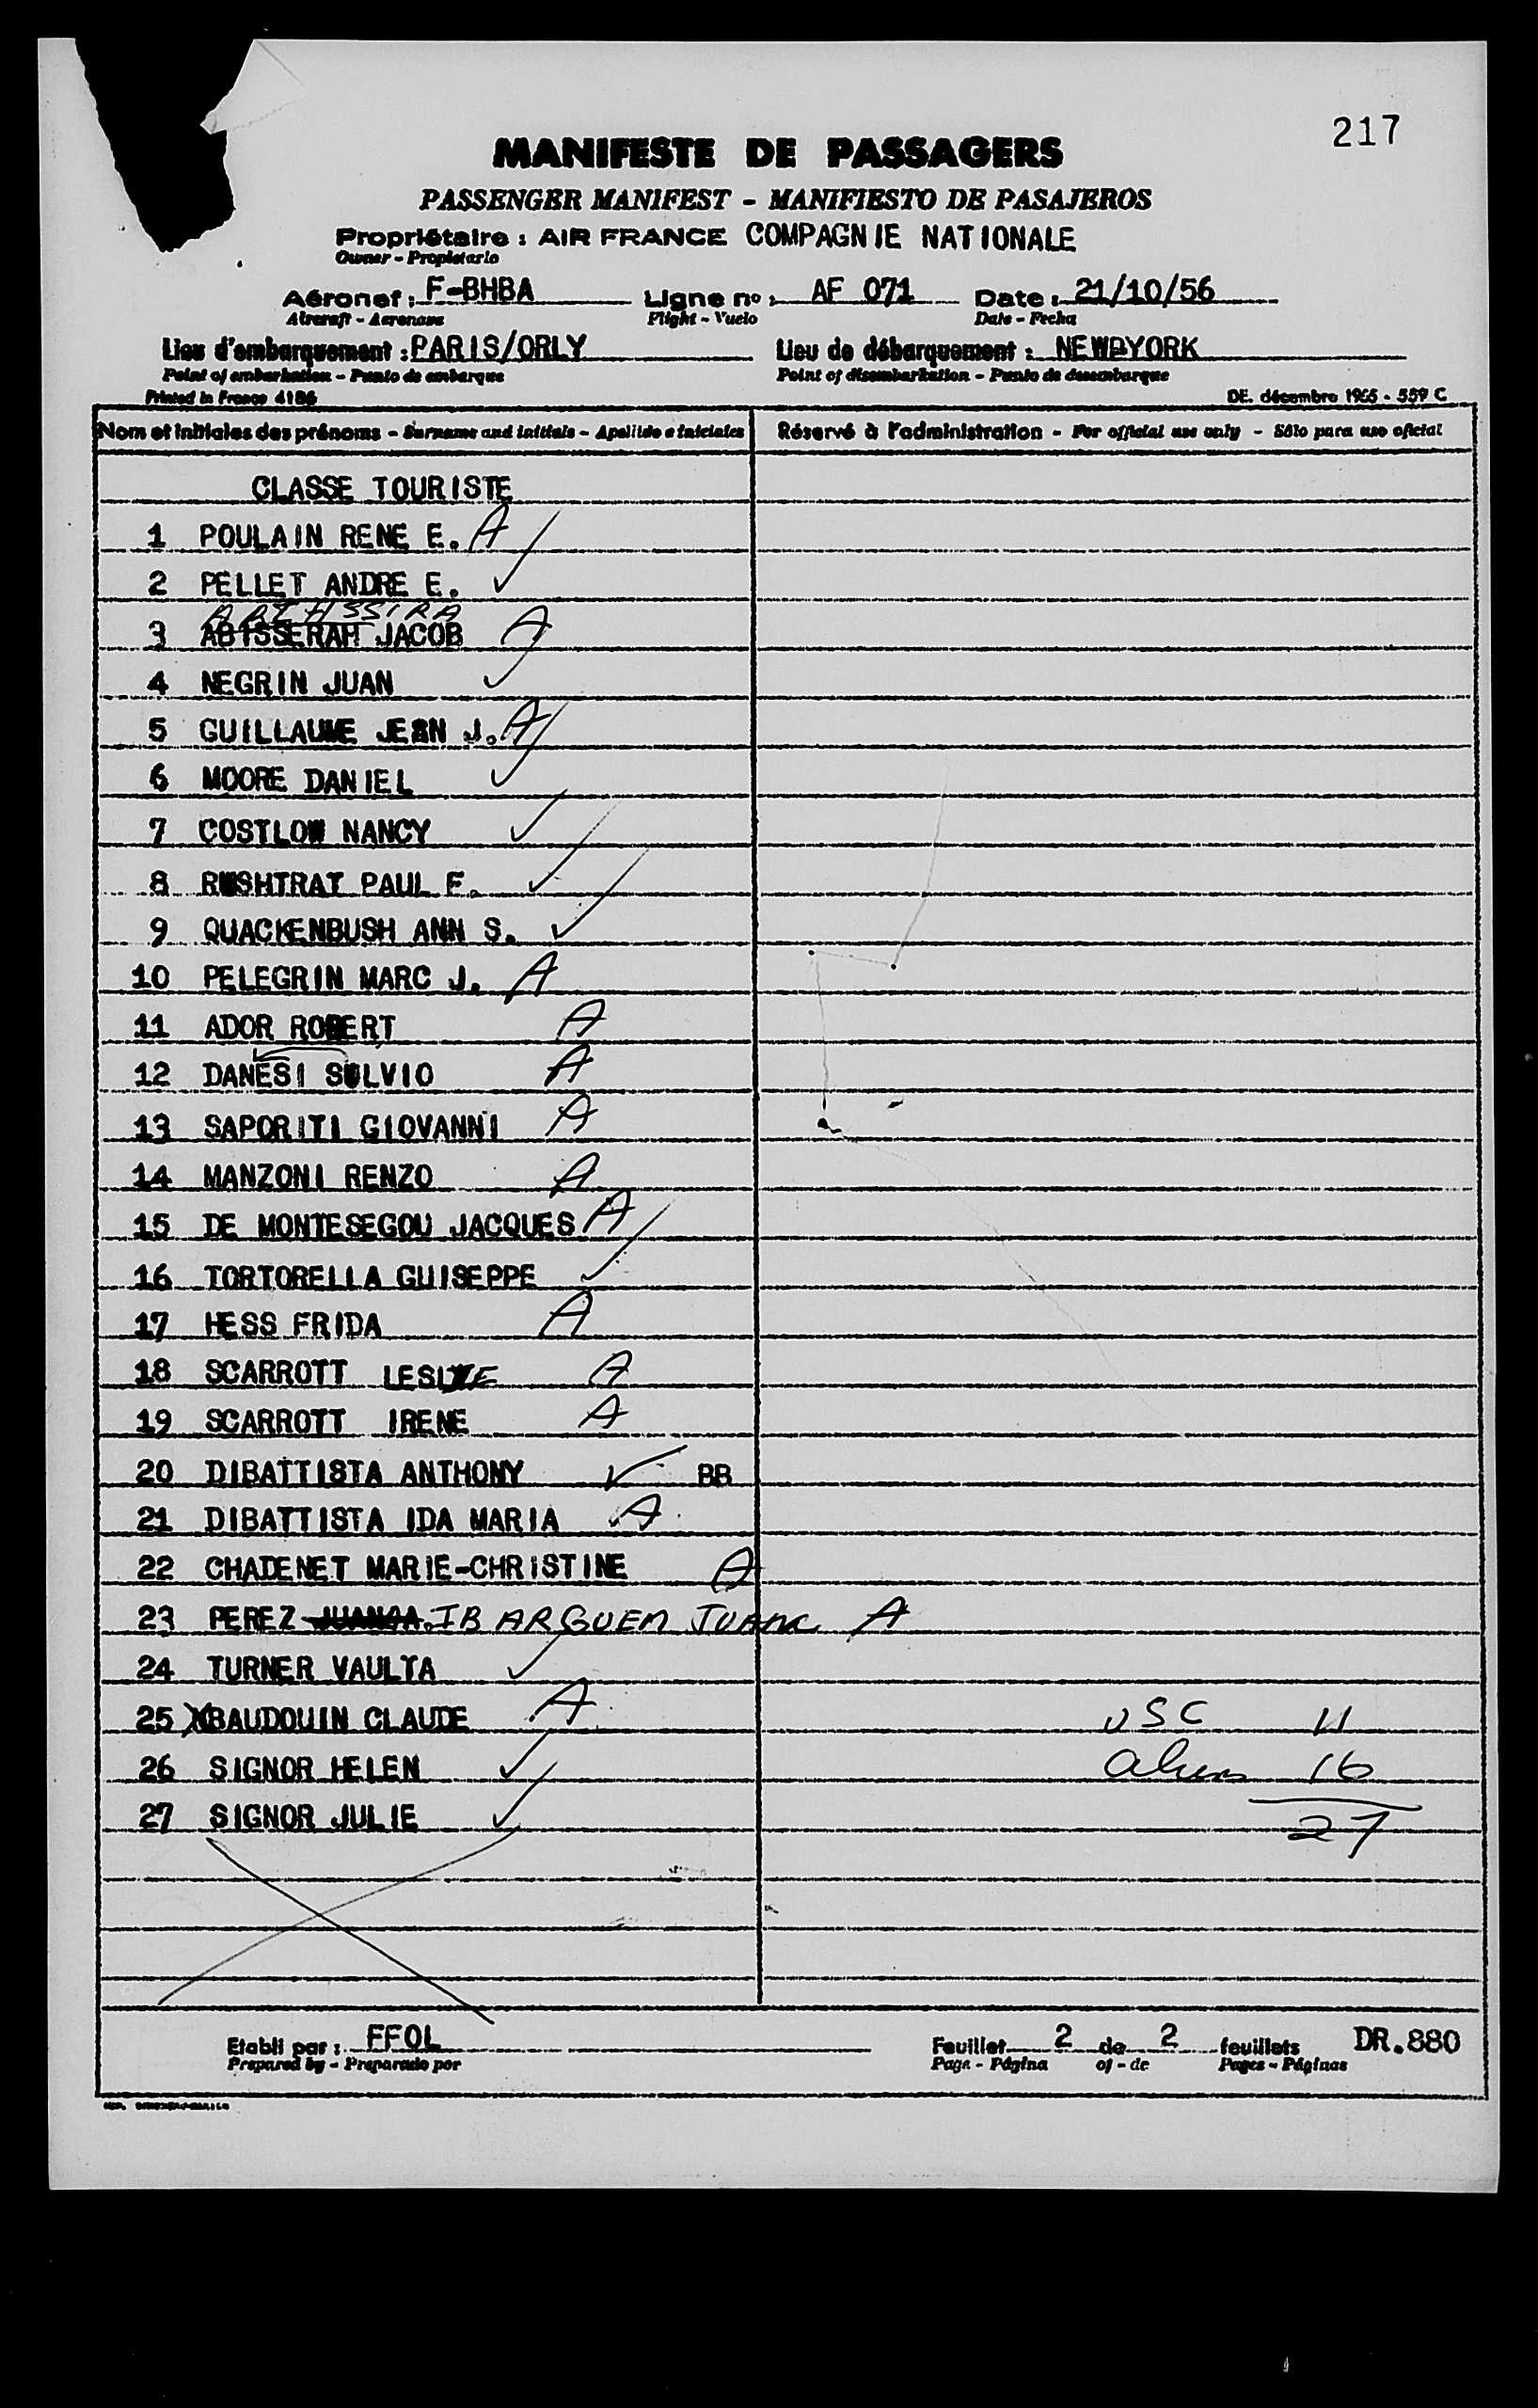 217
MANIFESTE DE PASSAGERS
PASSENGER MANIFEST - MANIFIESTO DE PASAJEROS
Propriétaire : AIR FRANCE COMPAGNIE NATIONALE
Owner - Propietario
Aéronef : F-BHBA Ligne no : AF 071 Date : 21/10/56
Aircraft - Aeronave Flight - Vuelo Date - Fecha
Lieu d'embarquement : PARIS/ORLY Lieu de débarquement : NEW-YORK
Point of embarkation - Punto de embarque Point of disembarkation - Punto de desembarque
Printed in France 4186 DE. décembre 1955 - 559 C
Nom et initiales des prénoms - Surname and initials - Apellido e iniciales Réservé à l'administration - For official use only - Sólo para uso oficial
CLASSE TOURISTE
1 POULAIN RENE E. A
2 PELLET ANDRE E. ✓
3 ABISSERAH JACOB A
4 NEGRIN JUAN ✓
5 GUILLAUME JEAN J. A
6 MOORE DANIEL ✓
7 COSTLOW NANCY ✓
8 RUSHTRAT PAUL F. ✓
9 QUACKENBUSH ANN S. ✓
10 PELEGRIN MARC J. A
11 ADOR ROBERT A
12 DANESI SULVIO A
13 SAPORITI GIOVANNI A
14 MANZONI RENZO A
15 DE MONTESEGOU JACQUES A
16 TORTORELLA GUISEPPE ✓
17 HESS FRIDA A
18 SCARROTT LESLIE A
19 SCARROTT IRENE A
20 DIBATTISTA ANTHONY ✓ BB
21 DIBATTISTA IDA MARIA A
22 CHADENET MARIE-CHRISTINE A
23 PEREZ IBARGUEN JUANA A
24 TURNER VAULTA ✓
25 X BAUDOUIN CLAUDE A USC 11
26 SIGNOR HELEN ✓ Aliens 16
27 SIGNOR JULIE ✓ 27
Etabli par : FFOL Feuillet 2 de 2 feuillets DR.880
Prepared by - Preparado por Page - Página of - de Pages - Páginas